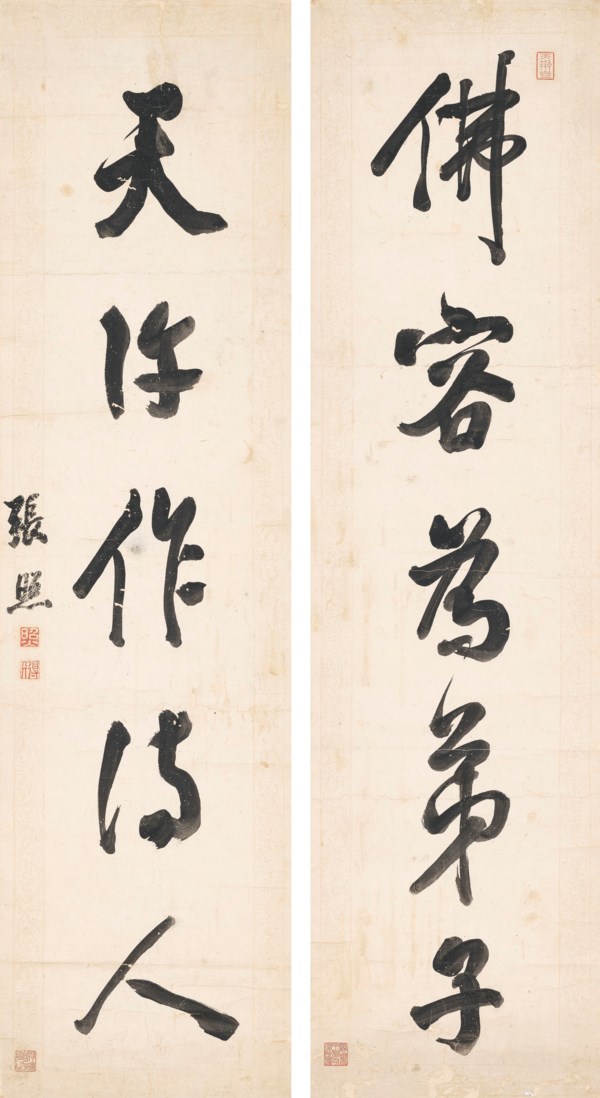 佛容為弟子
天許作詩人
張照